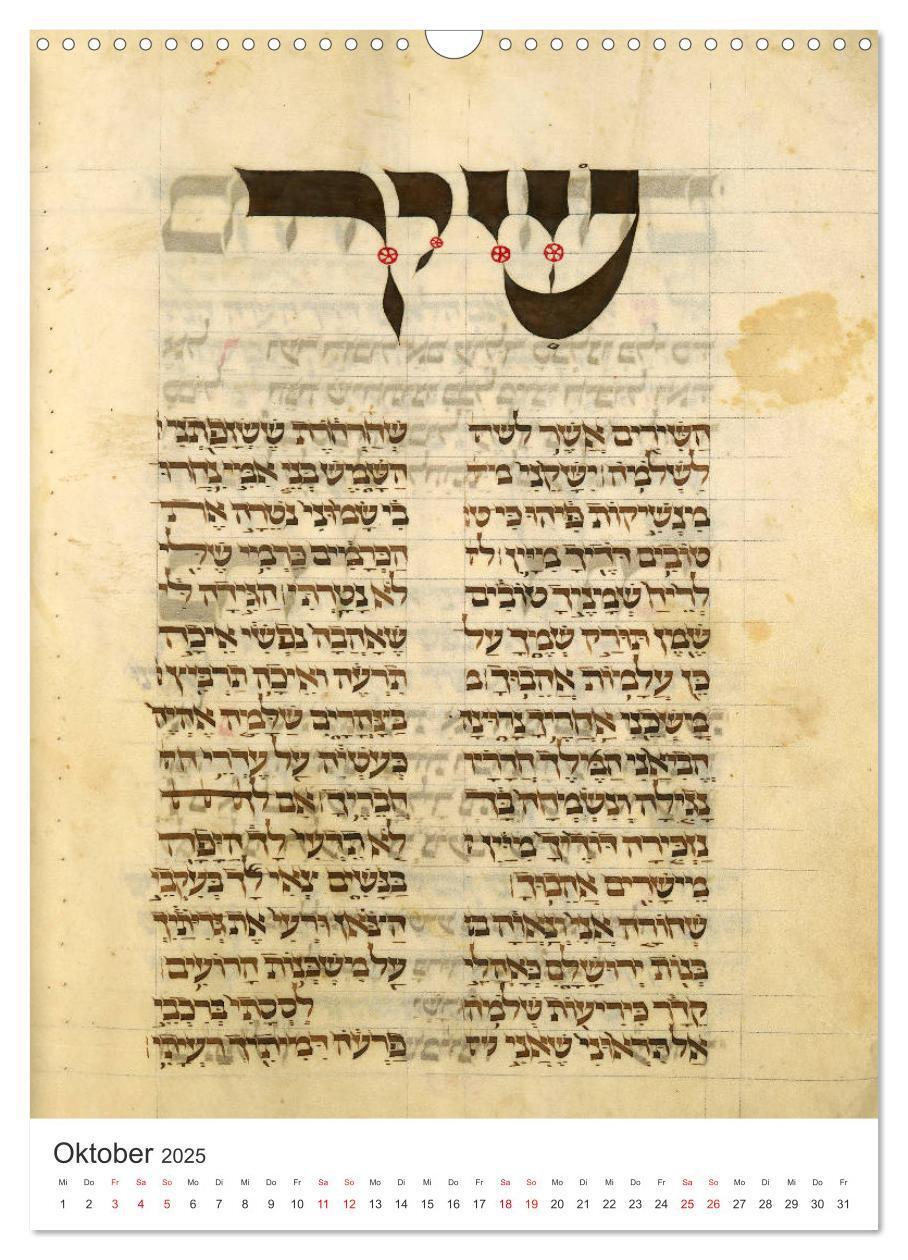 שיר
השירים אשר
לשלמה ישקני
מנשיקות פיהו כי טו
טובים דדיך מיין
לריח שמניך טובים
שמן תורק שמך על
כן עלמות אהבוך
משכני אחריך נרוצה
הביאני המלך חדריו
נגילה ונשמחה בך
נזכירה דודיך מיין
מישרים אהבוך
שחורה אני ונאוה בנ
בנות ירושלם כאהלי
קדר כיריעות שלמה
אל תראוני שאני
שחרחרת ששזפתני
השמש בני אמי נחרו
בי שמוני נטרה את
הכרמים כרמי שלי
לא נטרתי הגידה לי
שאהבה נפשי איכה
תרעה ואיכה תרביץ
בצהרים שלמה אהיה
כעטיה על עדרי
חבריך אם
לא תדעי לך היפה
בנשים צאי לך בעקבי
הצאן ורעי את גדיתיך
על משכנות הרועים
לססתי ברכבי
פרעה דמיתיך רעיתי
Oktober 2025
Mi Do Fr Sa So Mo Di Mi Do Fr Sa So Mo Di Mi Do Fr Sa So Mo Di Mi Do Fr Sa So Mo Di Mi Do Fr
1 2 3 4 5 6 7 8 9 10 11 12 13 14 15 16 17 18 19 20 21 22 23 24 25 26 27 28 29 30 31